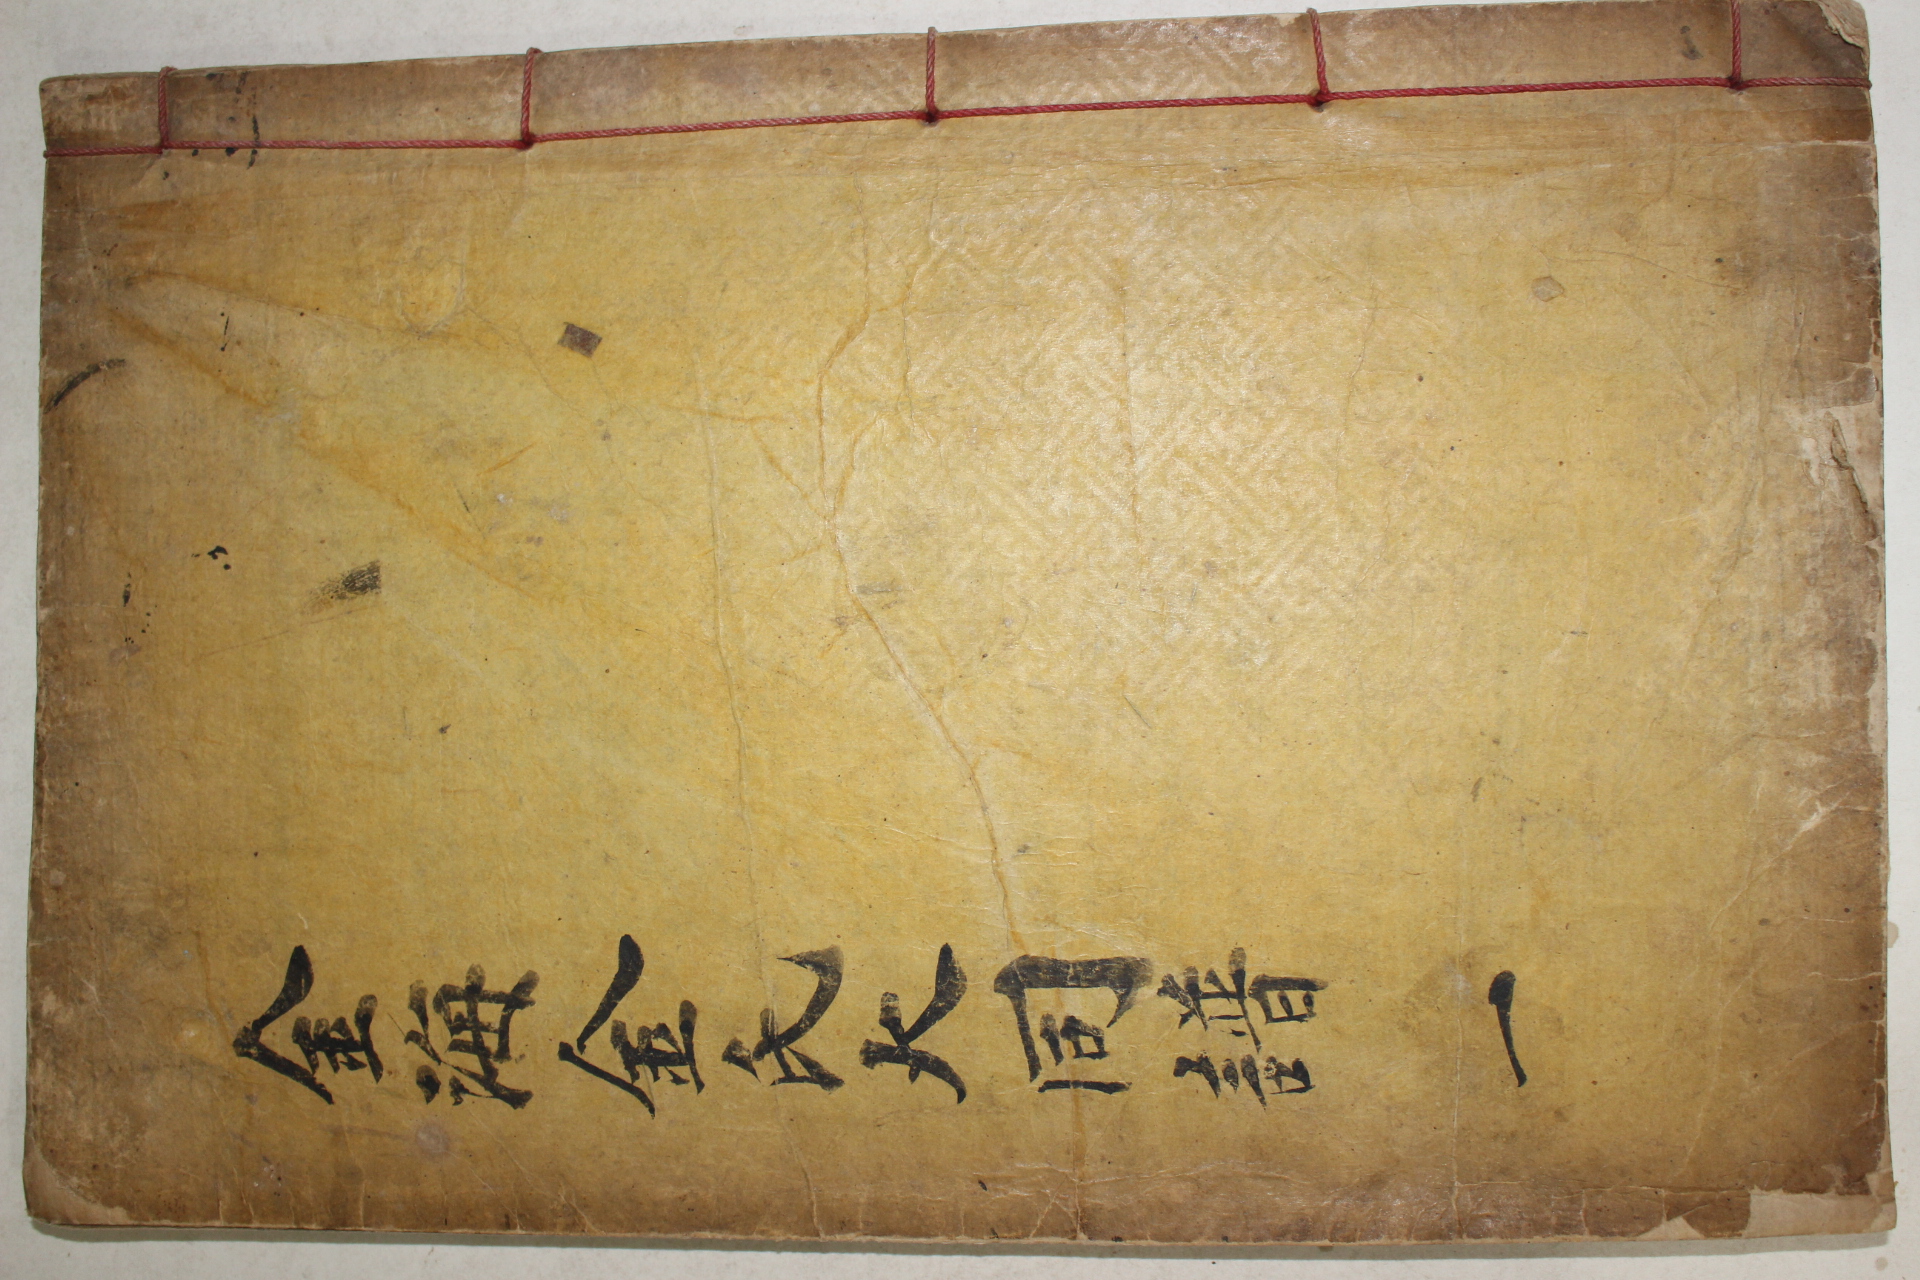 金海金氏大同譜 一